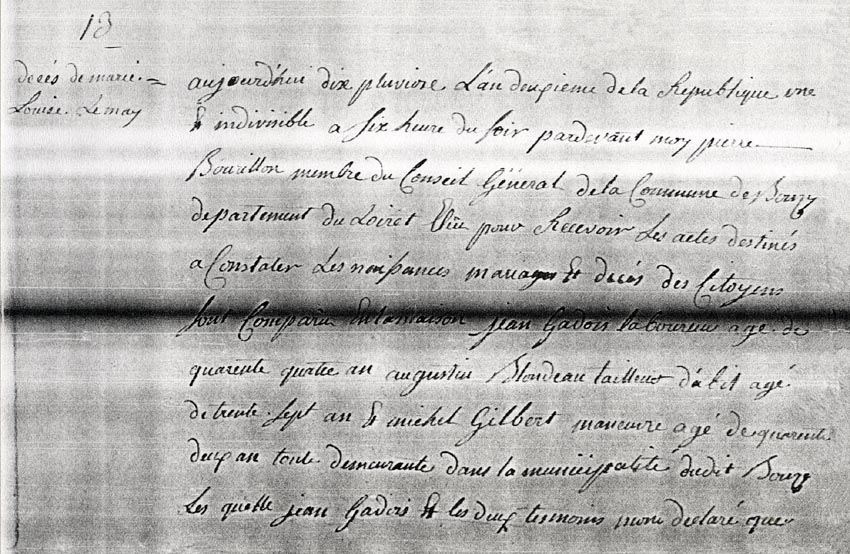 13
decés de marie
Louise Lemay
aujourd'hui dix pluviose L'an deuxieme de la Republique une
& indivisible a six heure du soir pardevant moy pierre
Bourillon membre du Conseil Géneral de la Commune de Bouzy
departement du Loiret Elüe pour Recevoir Les actes destinés
a Constater Les naissances mariages & decés des Citoyens
sont Comparu En la maison jean Gadois laboureur agé de
quarente quatre an augustin Blondeau tailleur d'abit agé
de trente sept an & michel Gilbert maneuvre agé de quarente
deux an toute demeurante dans la municipalité dudit Bouzy
Les quelle jean Gadois & les deux temoins mon declaré que